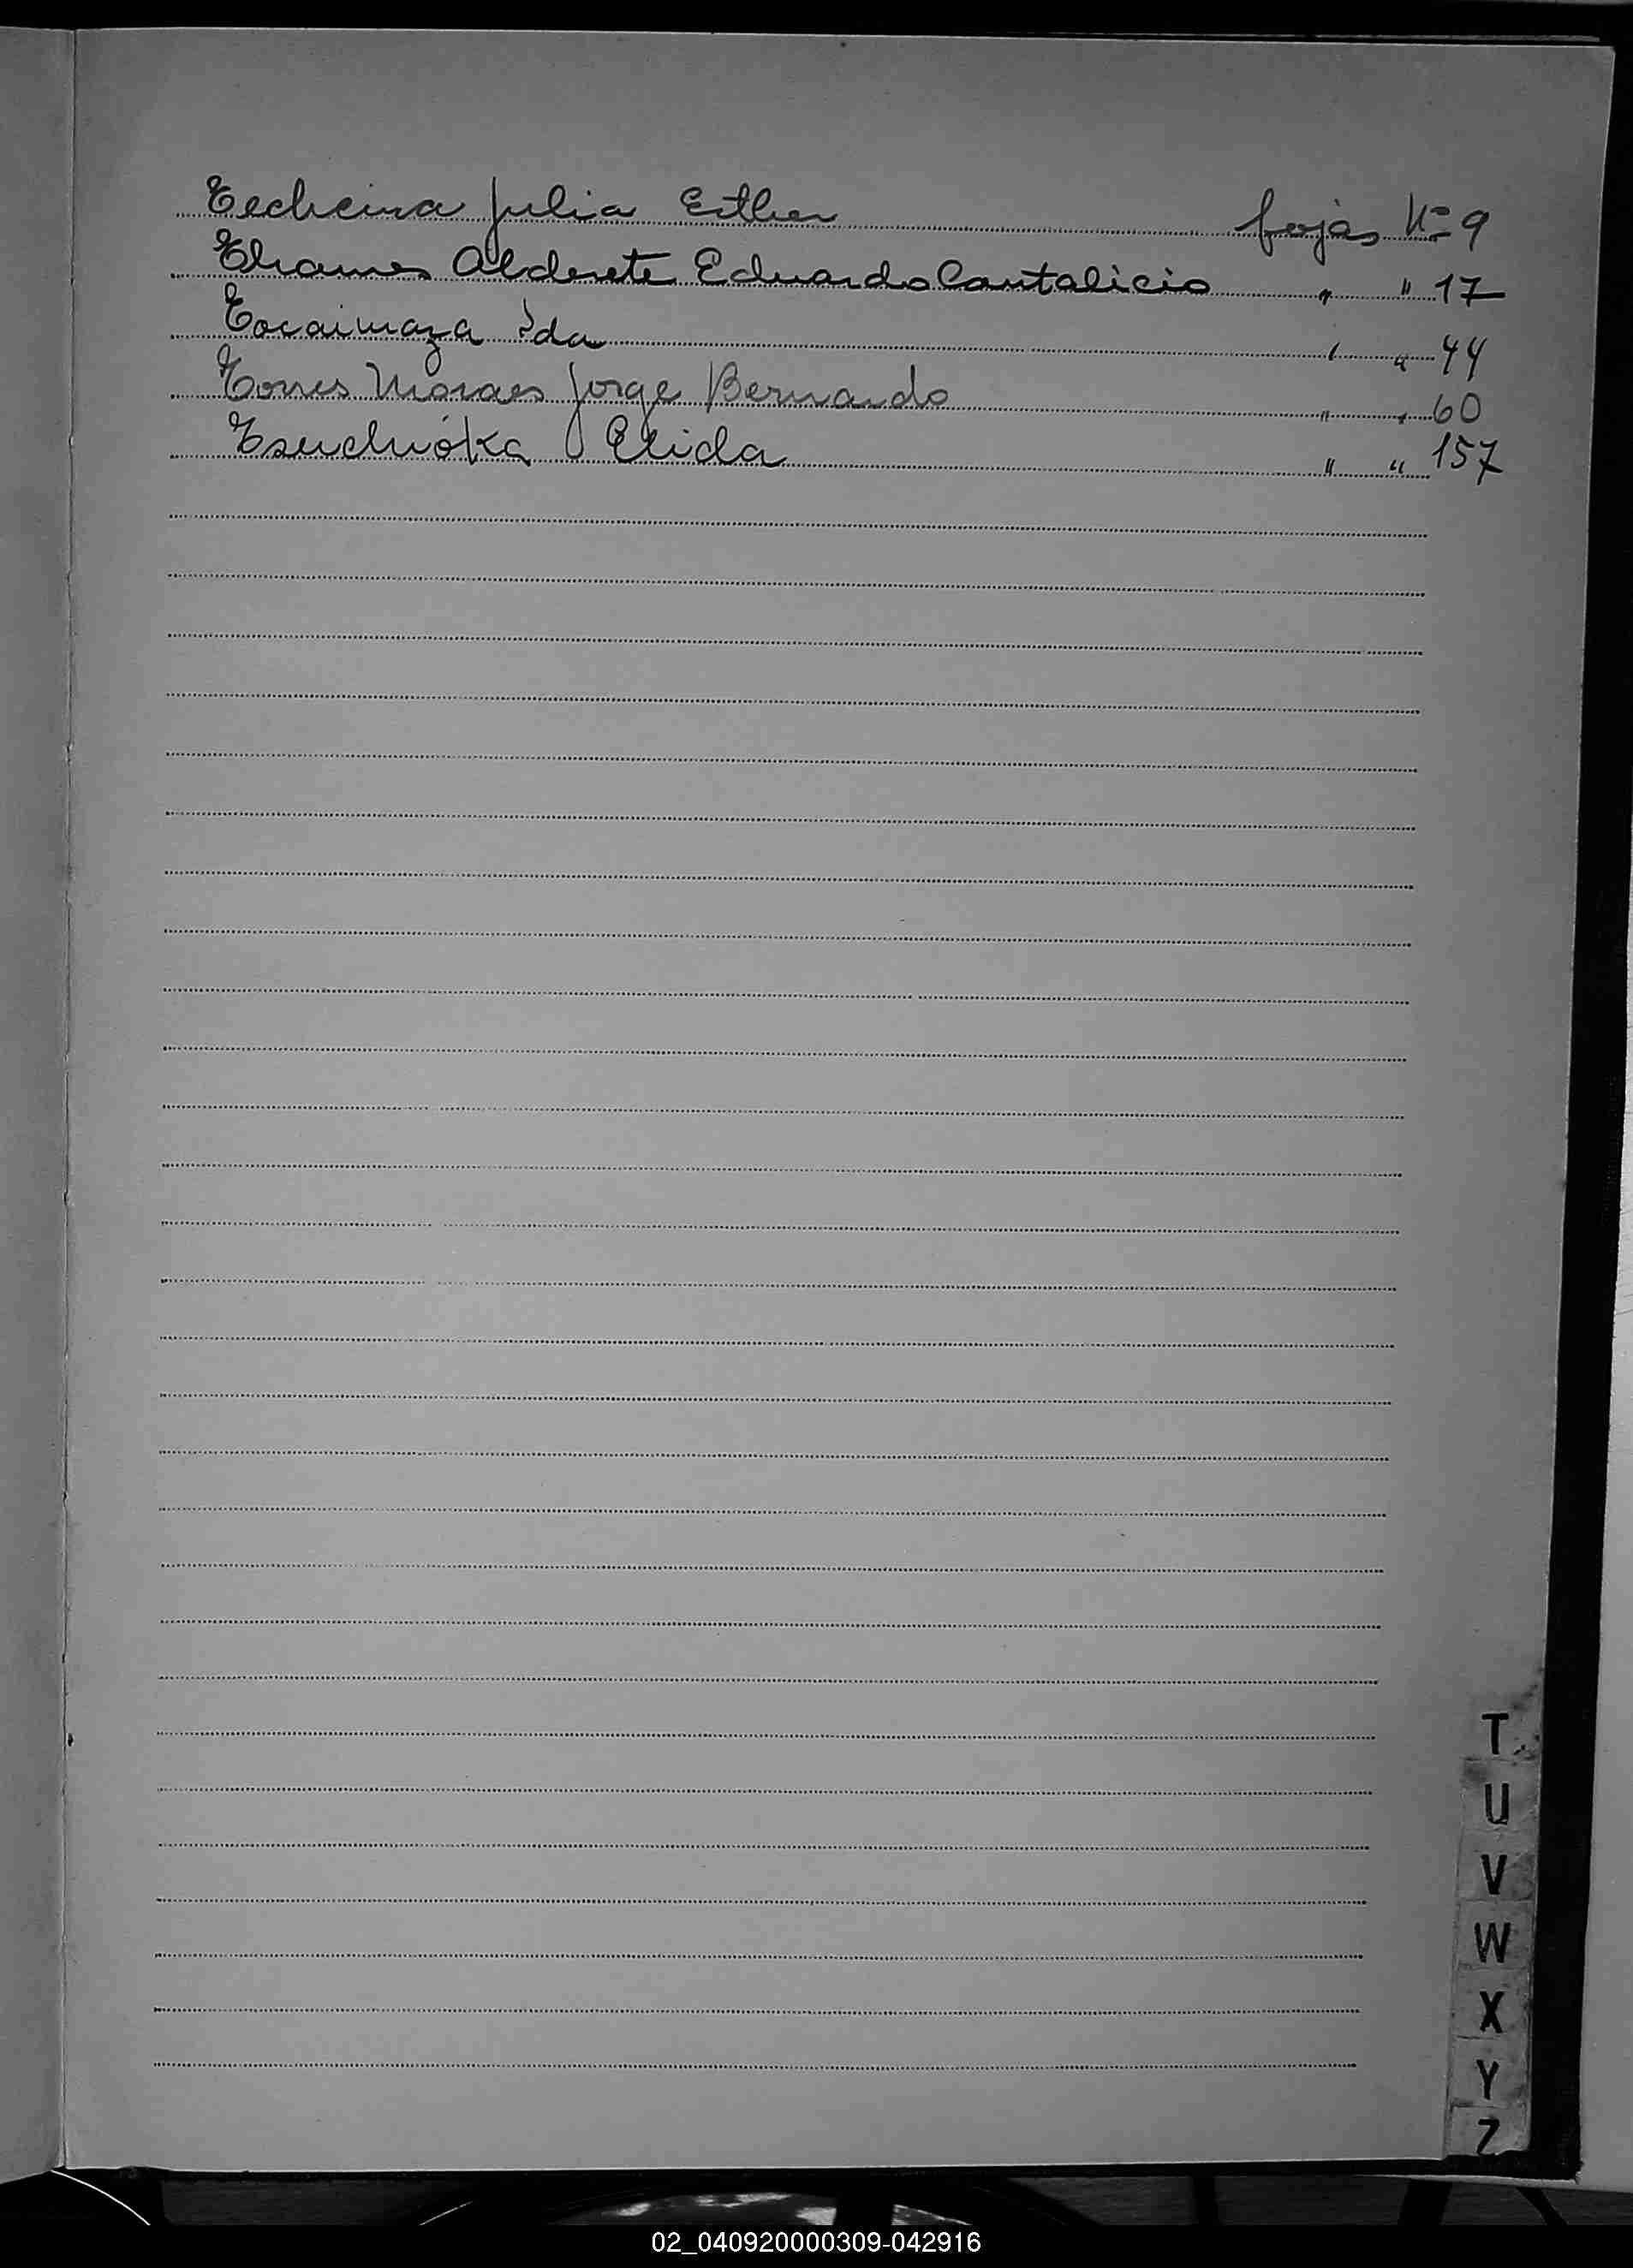 Techeira Julia Esther fojas Nº 9
Thames Alderete Eduardo Cantalicio " " 17
Tocaimaza Ida " " 44
Torres Moraes Jorge Bernardo " " 60
Elida " " 157
T
U
V
W
X
Y
Z
02_040920000309-042916